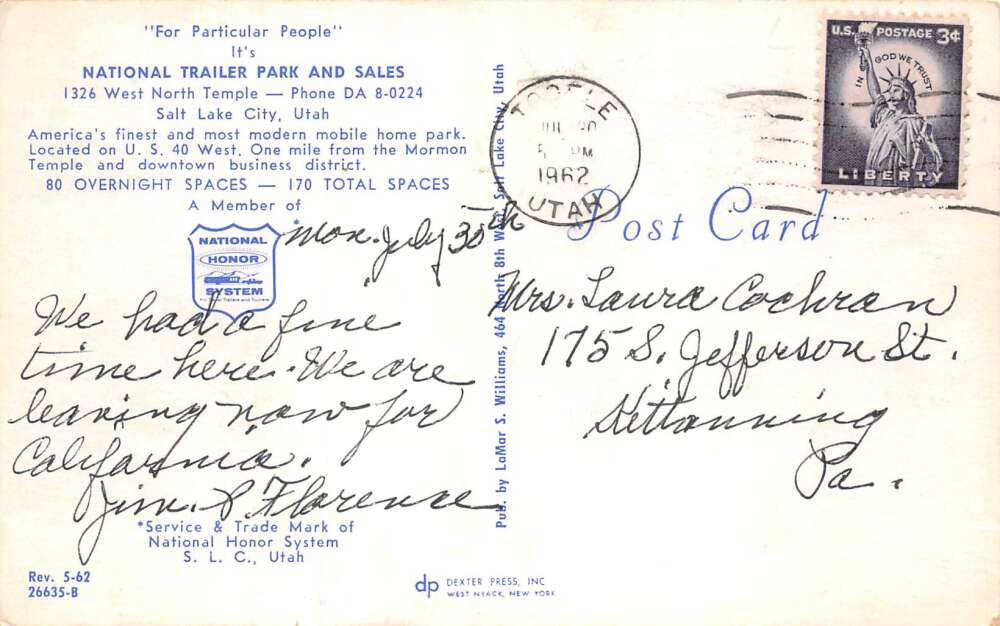 "For Particular People"
It's
NATIONAL TRAILER PARK AND SALES
1326 West North Temple — Phone DA 8-0224
Salt Lake City, Utah
America's finest and most modern mobile home park.
Located on U. S. 40 West. One mile from the Mormon
Temple and downtown business district.
80 OVERNIGHT SPACES — 170 TOTAL SPACES
A Member of
*
NATIONAL
HONOR
SYSTEM
Mon. July 30th
We had a fine
time here. We are
leaving now for
California.
Jim & Florence
*Service & Trade Mark of
National Honor System
S. L. C., Utah
Rev. 5-62
26635-B
Pub. by LaMar S. Williams, 464 North 8th West, Salt Lake City, Utah
dp DEXTER PRESS, INC
WEST NYACK, NEW YORK
TOOELE
JUL 30
PM
1962
UTAH
U.S. POSTAGE 3¢
IN GOD WE TRUST
LIBERTY
Post Card
Mrs. Laura Cochran
175 S. Jefferson St.
Kittanning
Pa.